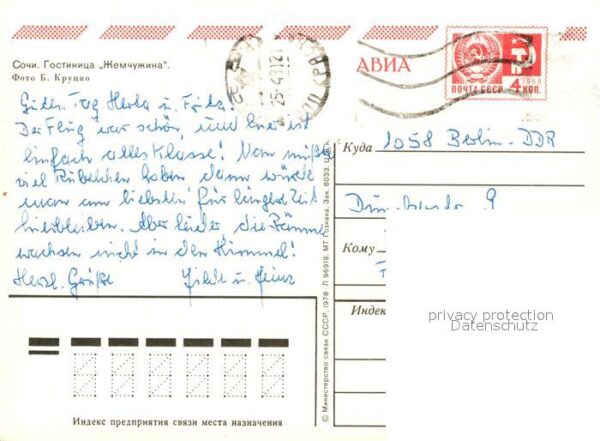 Сочи. Гостиница „Жемчужина".
Фото Б. Круцко
АВИА
1966
ПОЧТА СССР 4 КОП.
25-4
Guten Tag Herta u. Fritz!
Der Flug war schön, und hier ist
einfach alles Klasse! Man müßte
viel Rubelchen haben dann würde
man am liebsten für länger Zeit
hierbleiben. Aber leider die Bäume
wachsen nicht in den Himmel!
Herzl. Grüße Hilde u. Heinz
Куда 1058 Berlin-DDR
9
Кому
Индек
privacy protection
Datenschutz
© Министерство связи СССР, 1978 Л 96919. МТ Гознака. Зак. 8033.
Индекс предприятия связи места назначения